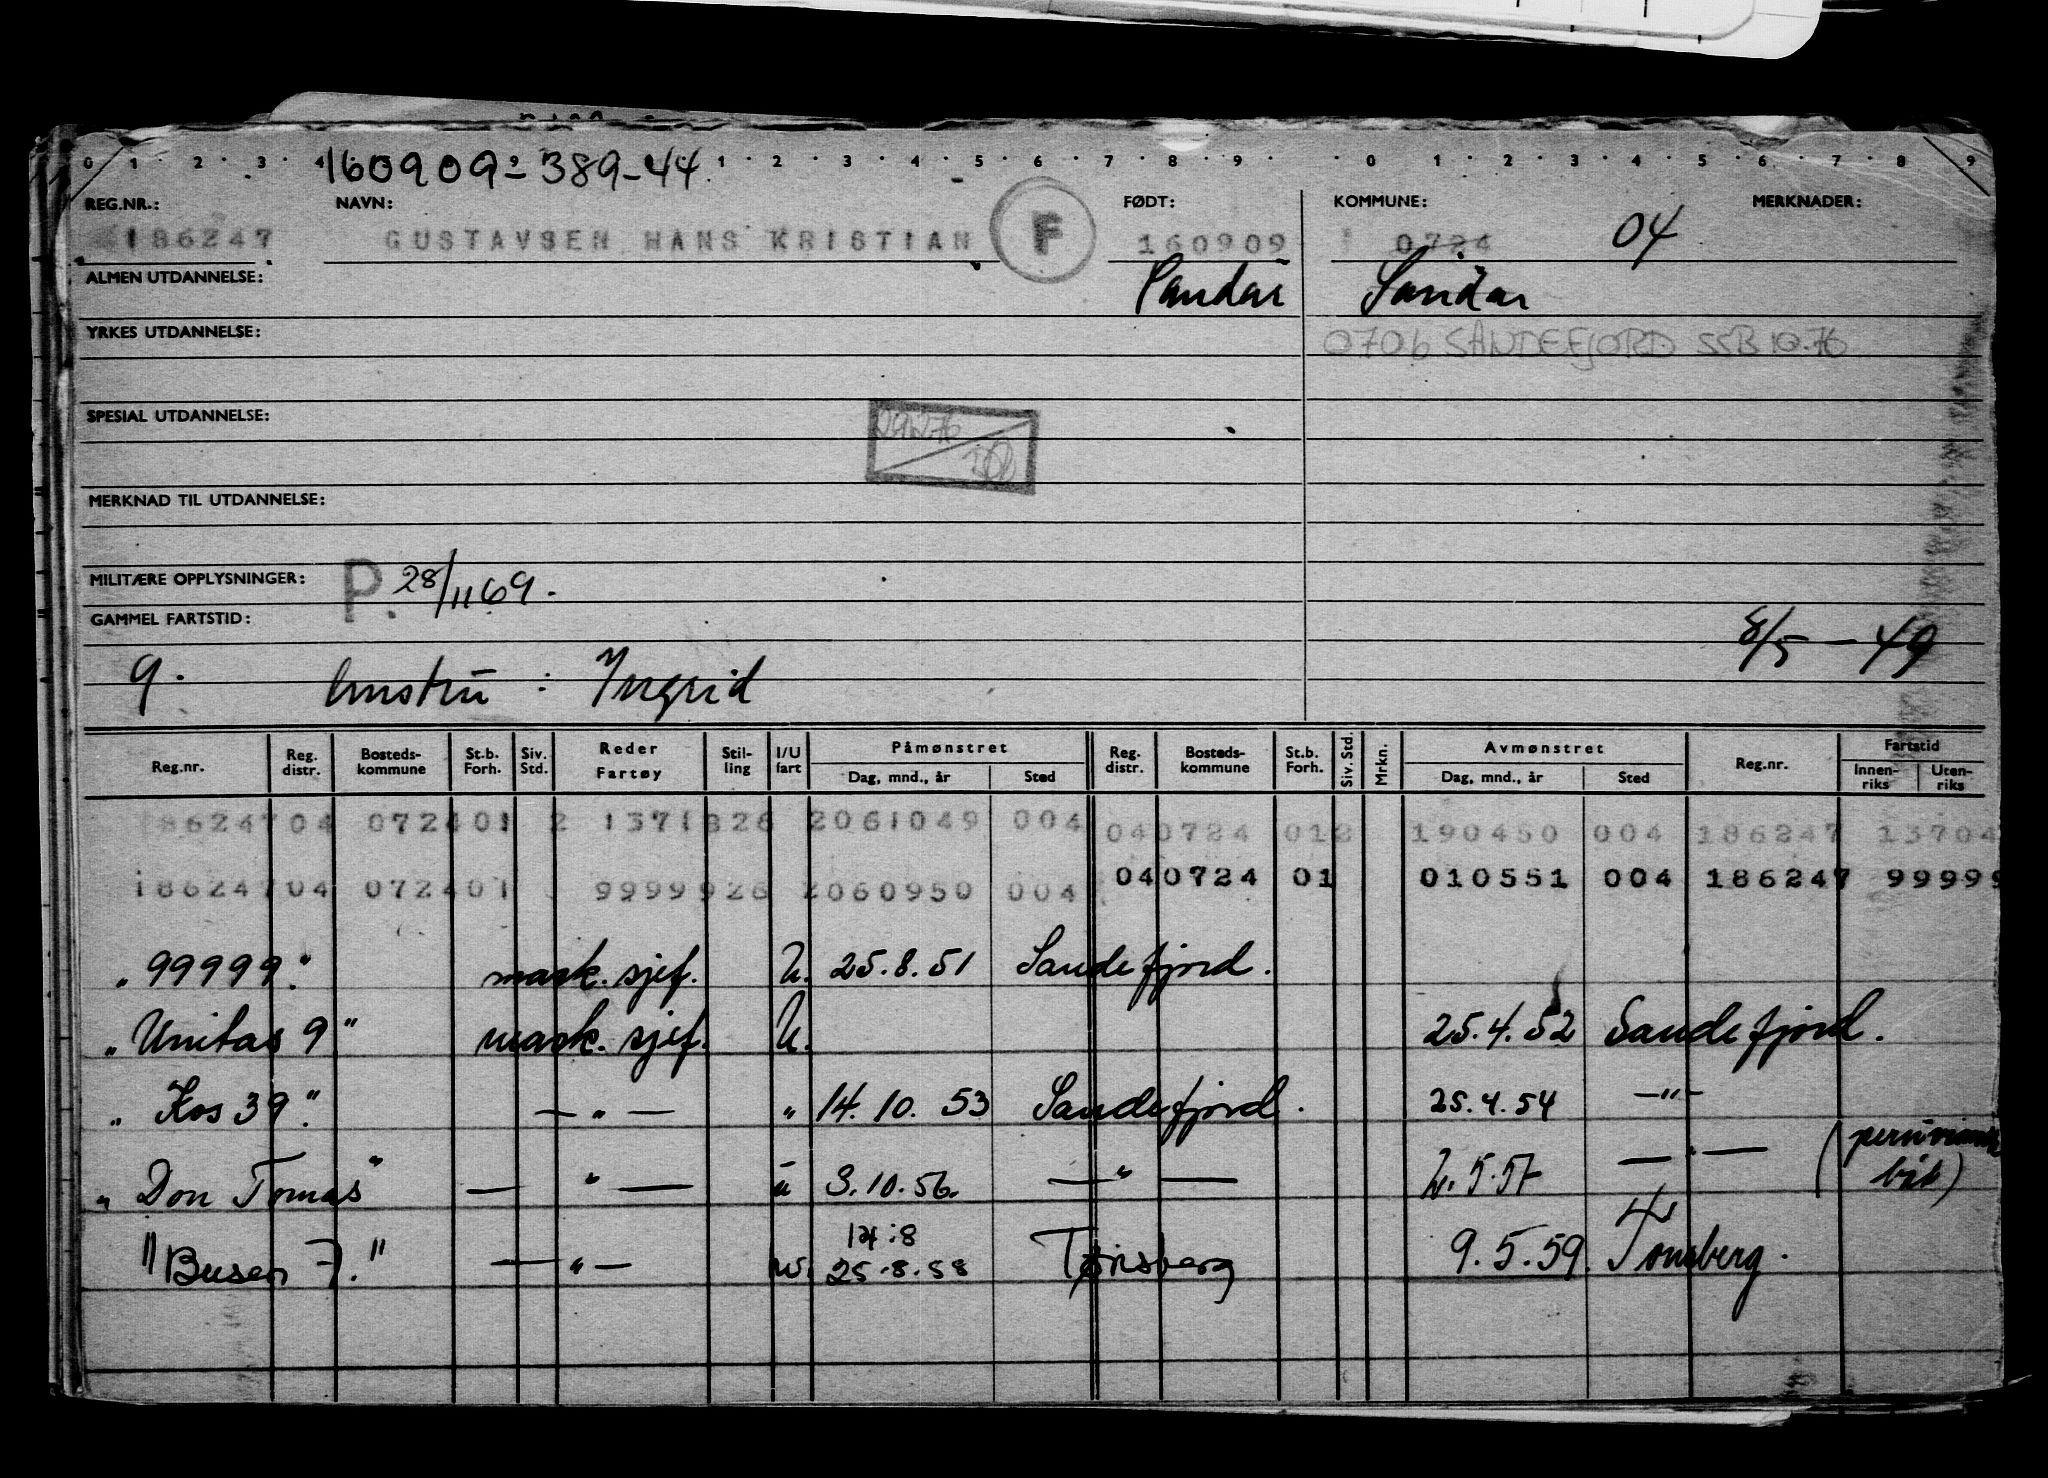 0 1 2 3 4 9 1 2 3 4 5 6 7 8 9 0 1 2 3 4 5 6 7 8 9
160909-389-44
REG.NR.: NAVN: FØDT: KOMMUNE: MERKNADER:
186247 GUSTAVSEN HANS KRISTIAN F 160909 0724 04
ALMEN UTDANNELSE: Sandar Sandar
YRKES UTDANNELSE: 0706 SANDEFJORD SSB 10.76
SPESIAL UTDANNELSE:
MERKNAD TIL UTDANNELSE:
MILITÆRE OPPLYSNINGER: P. 28/11 69.
GAMMEL FARTSTID: 8/5 - 49
9. hustru : Yngrid
Reg.nr. Reg. distr. Bosteds-kommune St.b. Forh. Siv. Std. Reder Fartøy Stil-ling I/U fart Påmønstret Dag, mnd., år Sted Reg. distr. Bosteds-kommune St.b. Forh. Siv. Std. Mrkn. Avmønstret Dag, mnd., år Sted Reg.nr. Fartstid Innen-riks Uten-riks
186247 04 0724 01 2 1371 826 2 061049 004 04 0724 01 2 190450 004 186247 13704
186247 04 0724 01 9999 926 2 060950 004 04 0724 01 010551 004 186247 99999
"99999." mask. sjef. U. 25.8.51 Sandefjord.
"Unitas 9" mask. sjef. U. 25.4.52 Sandefjord.
"Kos 39." — " — " 14.10.53 Sandefjord. 25.4.54 — " —
"Don Tomas" — " — u 3.10.56. — " — 2.5.57 — " — (peruviansk båt)
14.8
"Busen 7." — " — u. 25.8.58 Tønsberg 9.5.59. Tønsberg.